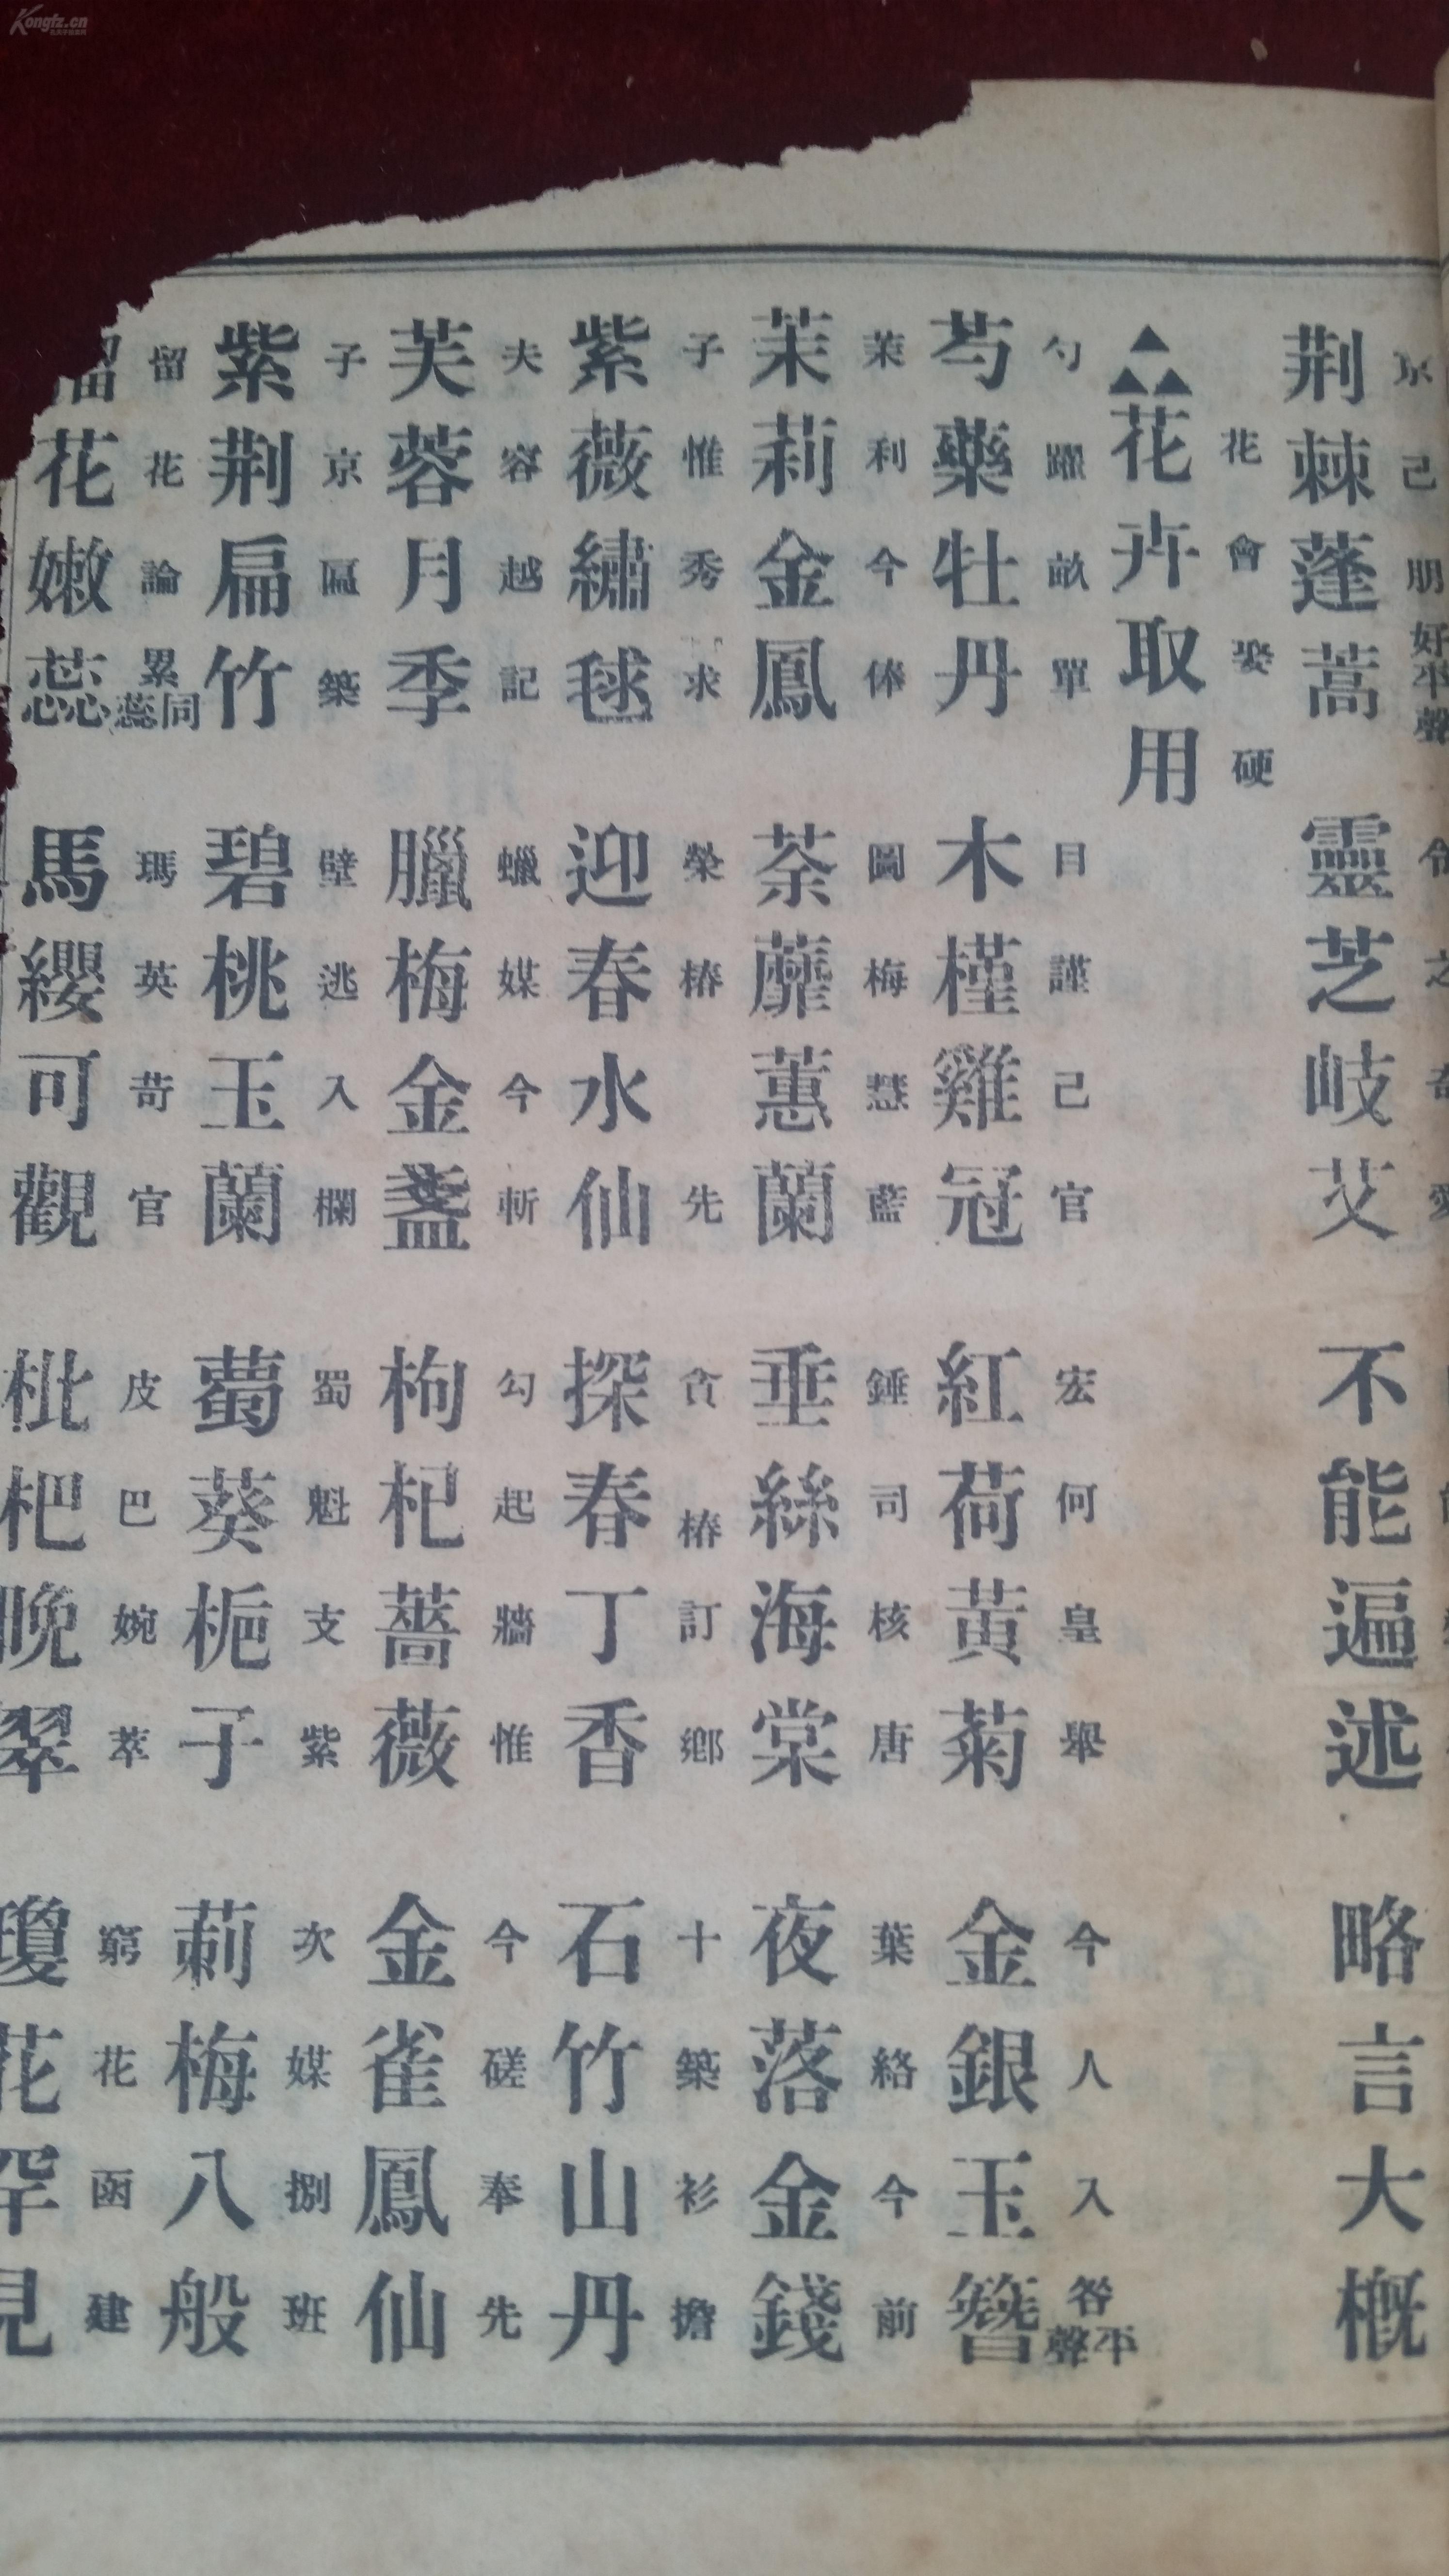 Kongfz.cn
京 己 朋 好平聲
荆棘蓬蒿 靈芝岐艾 不能遍述 略言大概
花 會 娶 硬
▲▲▲花卉取用
勺 躍 畝 單 目 謹 己 官 宏 何 皇 舉 今 人 入 咎平聲
芍藥牡丹 木槿雞冠 紅荷黃菊 金銀玉簪
茉 利 今 俸 圖 梅 慧 藍 錘 司 核 唐 葉 絡 今 前
茉莉金鳳 荼蘼蕙蘭 垂絲海棠 夜落金錢
子 惟 秀 求 榮 椿 先 貪 椿 訂 鄉 十 築 衫 擔
紫薇繡毬 迎春水仙 探春丁香 石竹山丹
夫 容 越 記 蠟 媒 今 斬 勾 起 牆 惟 今 磋 奉 先
芙蓉月季 臘梅金盞 枸杞薔薇 金雀鳳仙
子 京 匾 築 壁 逃 入 欄 蜀 魁 支 紫 次 媒 捌 班
紫荆扁竹 碧桃玉蘭 蔔葵梔子 莿梅八般
留 花 論 累蕊同 瑪 英 苛 官 皮 巴 婉 萃 窮 花 函 建
榴花嫩蕊 馬纓可觀 枇杷晚翠 瓊花罕見